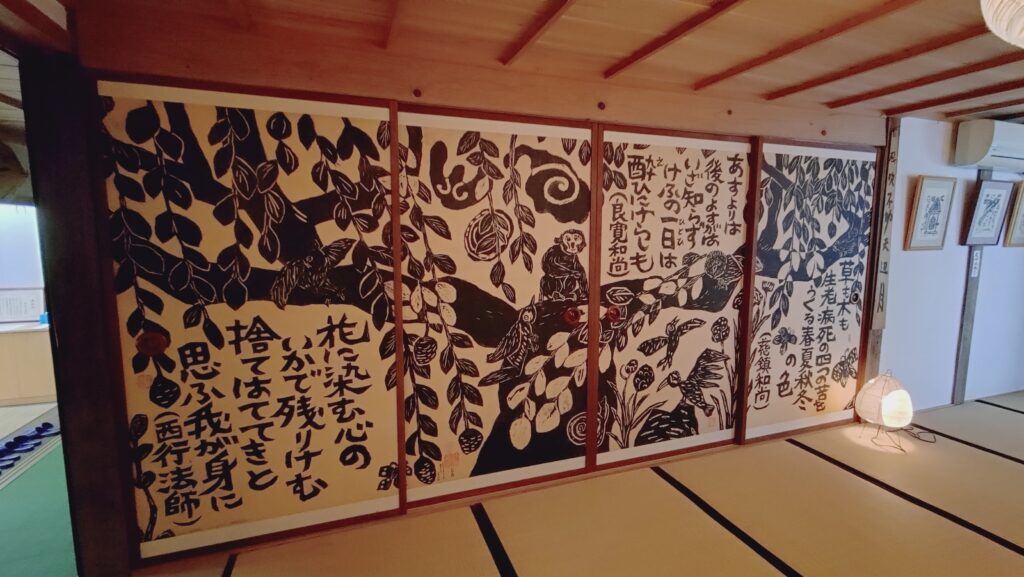 草も木も
生老病死の四つの苦を
つくる春夏秋冬
の色
あすよりは
後のよすがは
いざ知らず
けふの一日は
ひとひ
酔ひにけらしも
(良寛和尚)
花に染む心の
いかで残りけむ
捨てはててきと
思ふ我が身に
(西行法師)